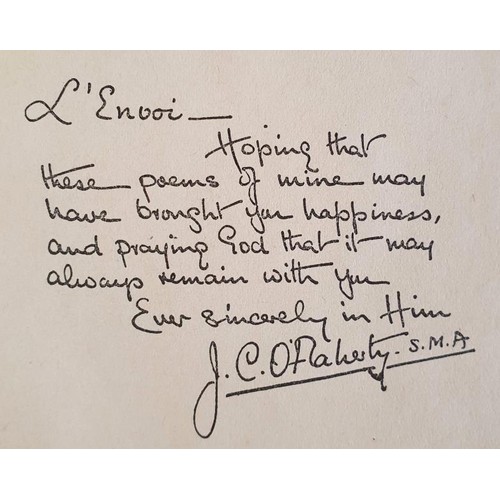 L'Envoi —
Hoping that
these poems of mine may
have brought you happiness,
and praying God that it may
always remain with you
Ever sincerely in Him
J. C. O'Flaherty. S.M.A